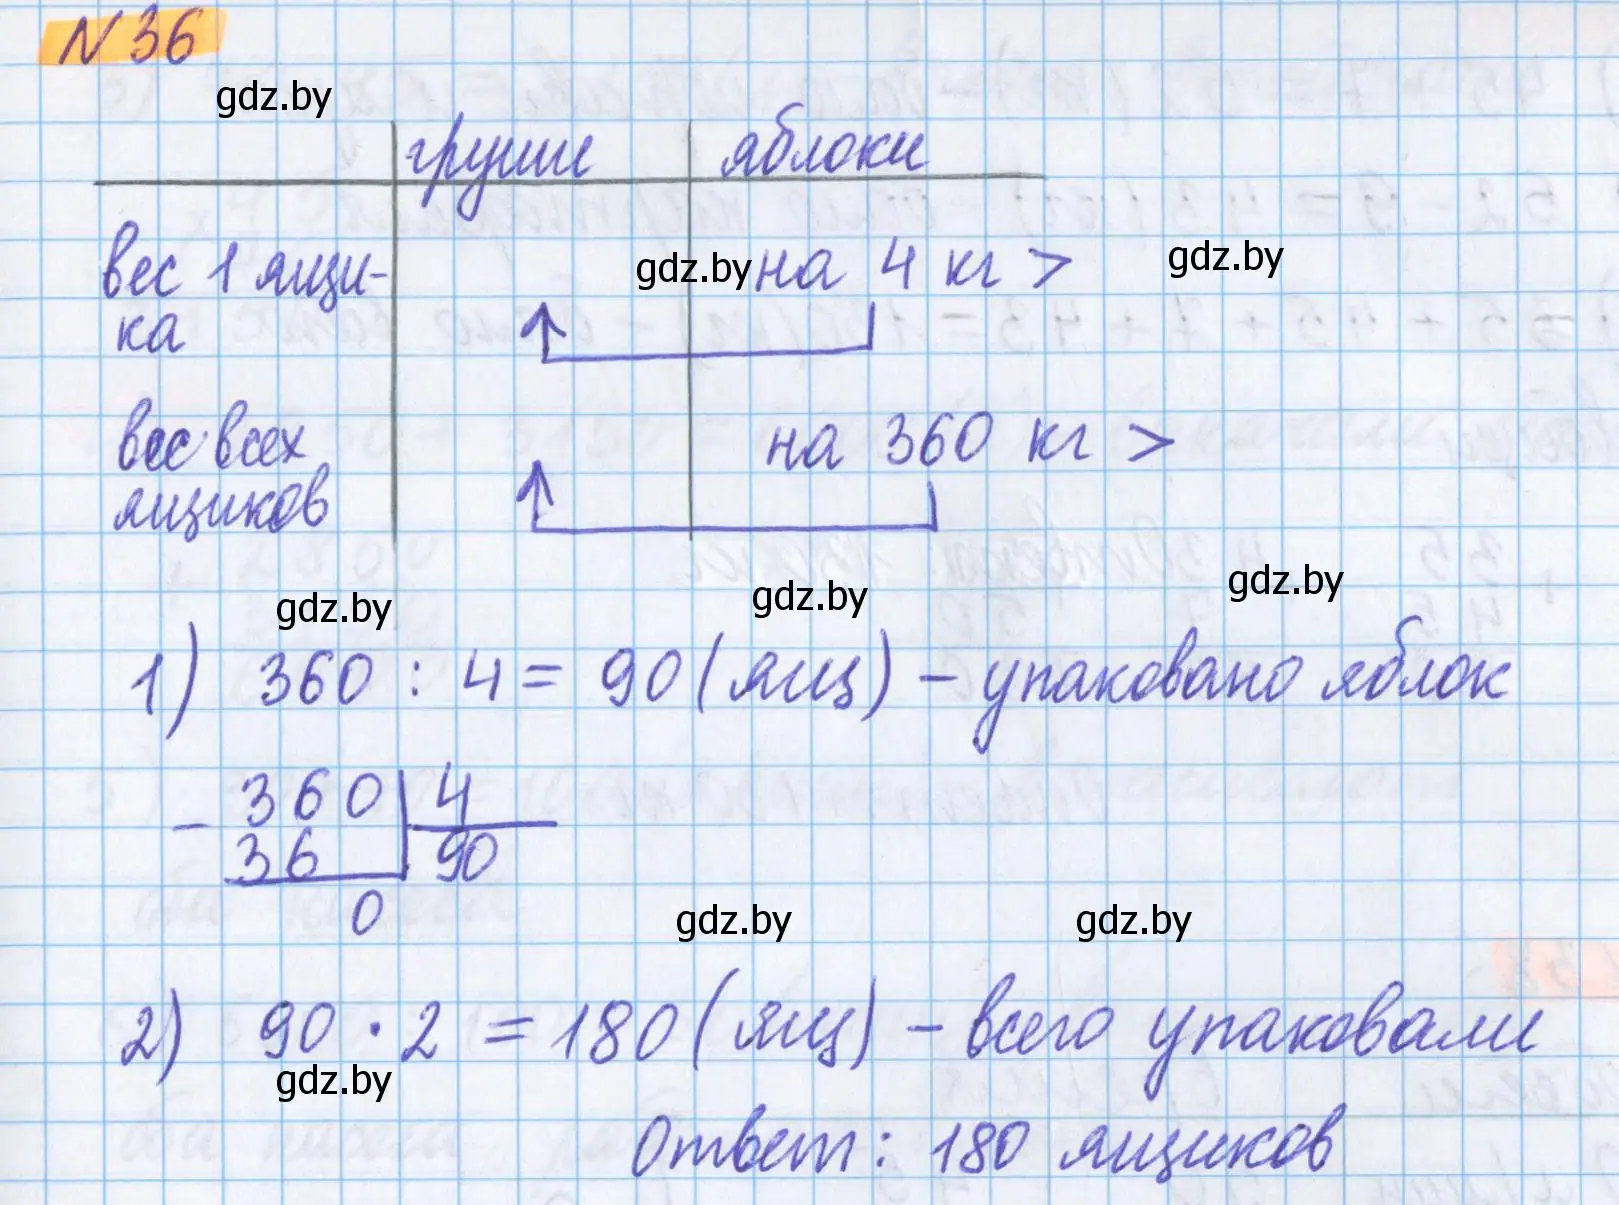 N 36
gdz.by
груши яблоки
вес 1 ящи- gdz.by на 4 кг > gdz.by
ка
вес всех на 360 кг >
ящиков
gdz.by gdz.by gdz.by
1) 360 : 4 = 90 (ящ) – упаковано яблок
- 360 4
36 90
0
gdz.by gdz.by
2) 90 · 2 = 180 (ящ) – всего упаковали
gdz.by
Ответ: 180 ящиков